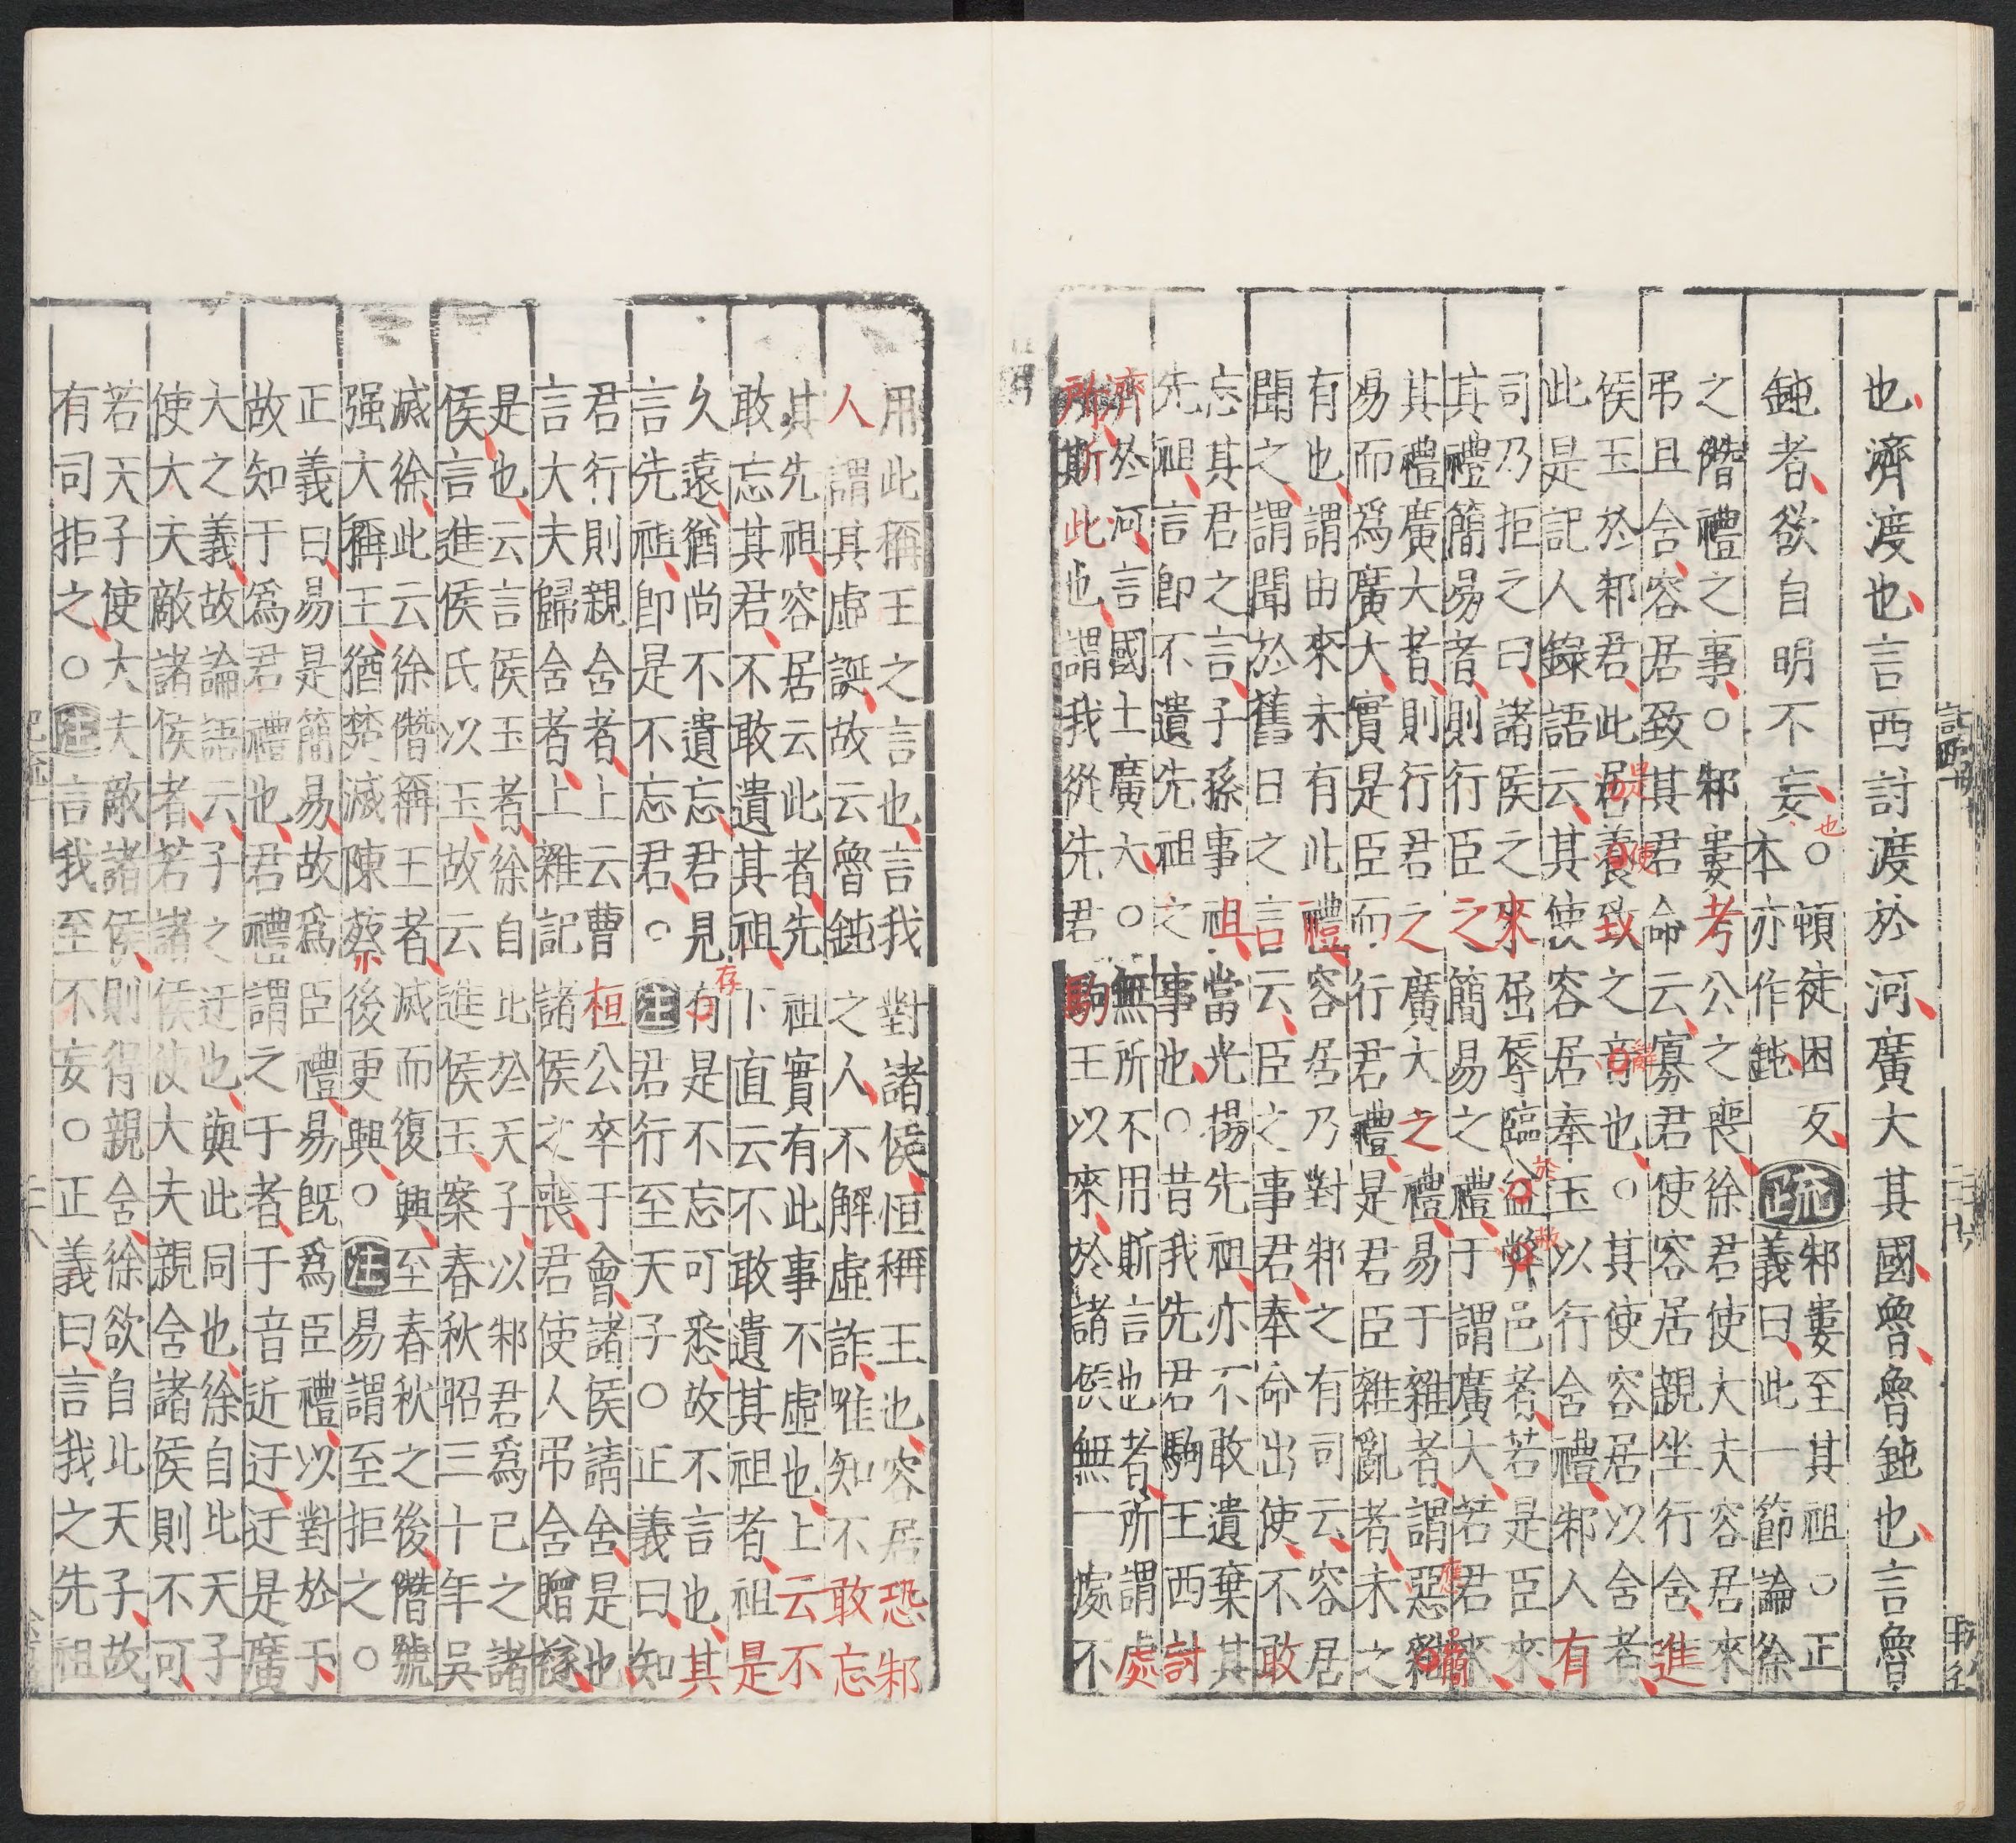 也濟渡也言西討渡於河廣大其國魯魯鈍也言魯
鈍者欲自明不妄
也
○頓徒困反
疏
邾婁至其祖○正
本亦作鈍
義曰此一節論徐
之僭禮之事○邾婁考公之喪徐君使大夫容居來
弔且含容居致其君命云寡君使容居親坐行含進
侯玉於邾君此是使致之辭也○其使容居以含者
此是記人錄語云其使容居奉玉以行含禮邾人有
司乃拒之曰諸侯之來屈辱臨於敝邑者若是臣來
其禮簡易者則行臣之簡易之禮于謂廣大若君來
其禮廣大者則行君之廣大之禮易于雜者謂應
易而爲廣大實是臣而行君禮是君臣雜亂者未之
有也謂由來未有此禮容居乃對邾之有司云容居
聞之謂聞於舊日之言云臣之事君奉命出使不敢
忘其君之言子孫事祖當光揚先祖亦不敢遺棄其
先祖言即不遺先祖之事也○昔我先君駒王西討
濟於河言國土廣大○無所不用斯言也者所謂處
所斯此也謂我從先君駒王以來於諸侯無一處不
用此稱王之言也言我對諸侯恒稱王也容居恐邾
人謂其虛誕故云魯鈍之人不解虛詐唯知不敢忘
其先祖容居云此者先祖實有此事不虛也上云不
敢忘其君不敢遺其祖下直云不敢遺其祖者祖是
久遠猶尚不遺忘君見存是不忘可悉故不言也其
言先祖即是不忘君○
注
君行至天子○正義曰知
君行則親含者上云曹桓公卒于會諸侯請含是也
言大夫歸含者上雜記諸侯之喪君使人弔含贈襚
是也云言侯玉者徐自比於天子以邾君爲已之諸
侯言進侯氏以玉故云進侯玉案春秋昭三十年吳
滅徐此云徐僭稱王者滅而復興至春秋之後僭號
强大稱王猶楚滅陳蔡後更興○
注
易謂至拒之○
正義曰易是簡易故爲臣禮易旣爲臣禮以對於于
故知于爲君禮也君禮謂之于者于音近迂迂是廣
大之義故論語云子之迂也與此同也徐自比天子
使大夫敵諸侯者若諸侯使大夫親含諸侯則不可
若天子使大夫敵諸侯則得親含徐欲自比天子故
有司拒之○
注
言我至不妄○正義曰言我之先祖